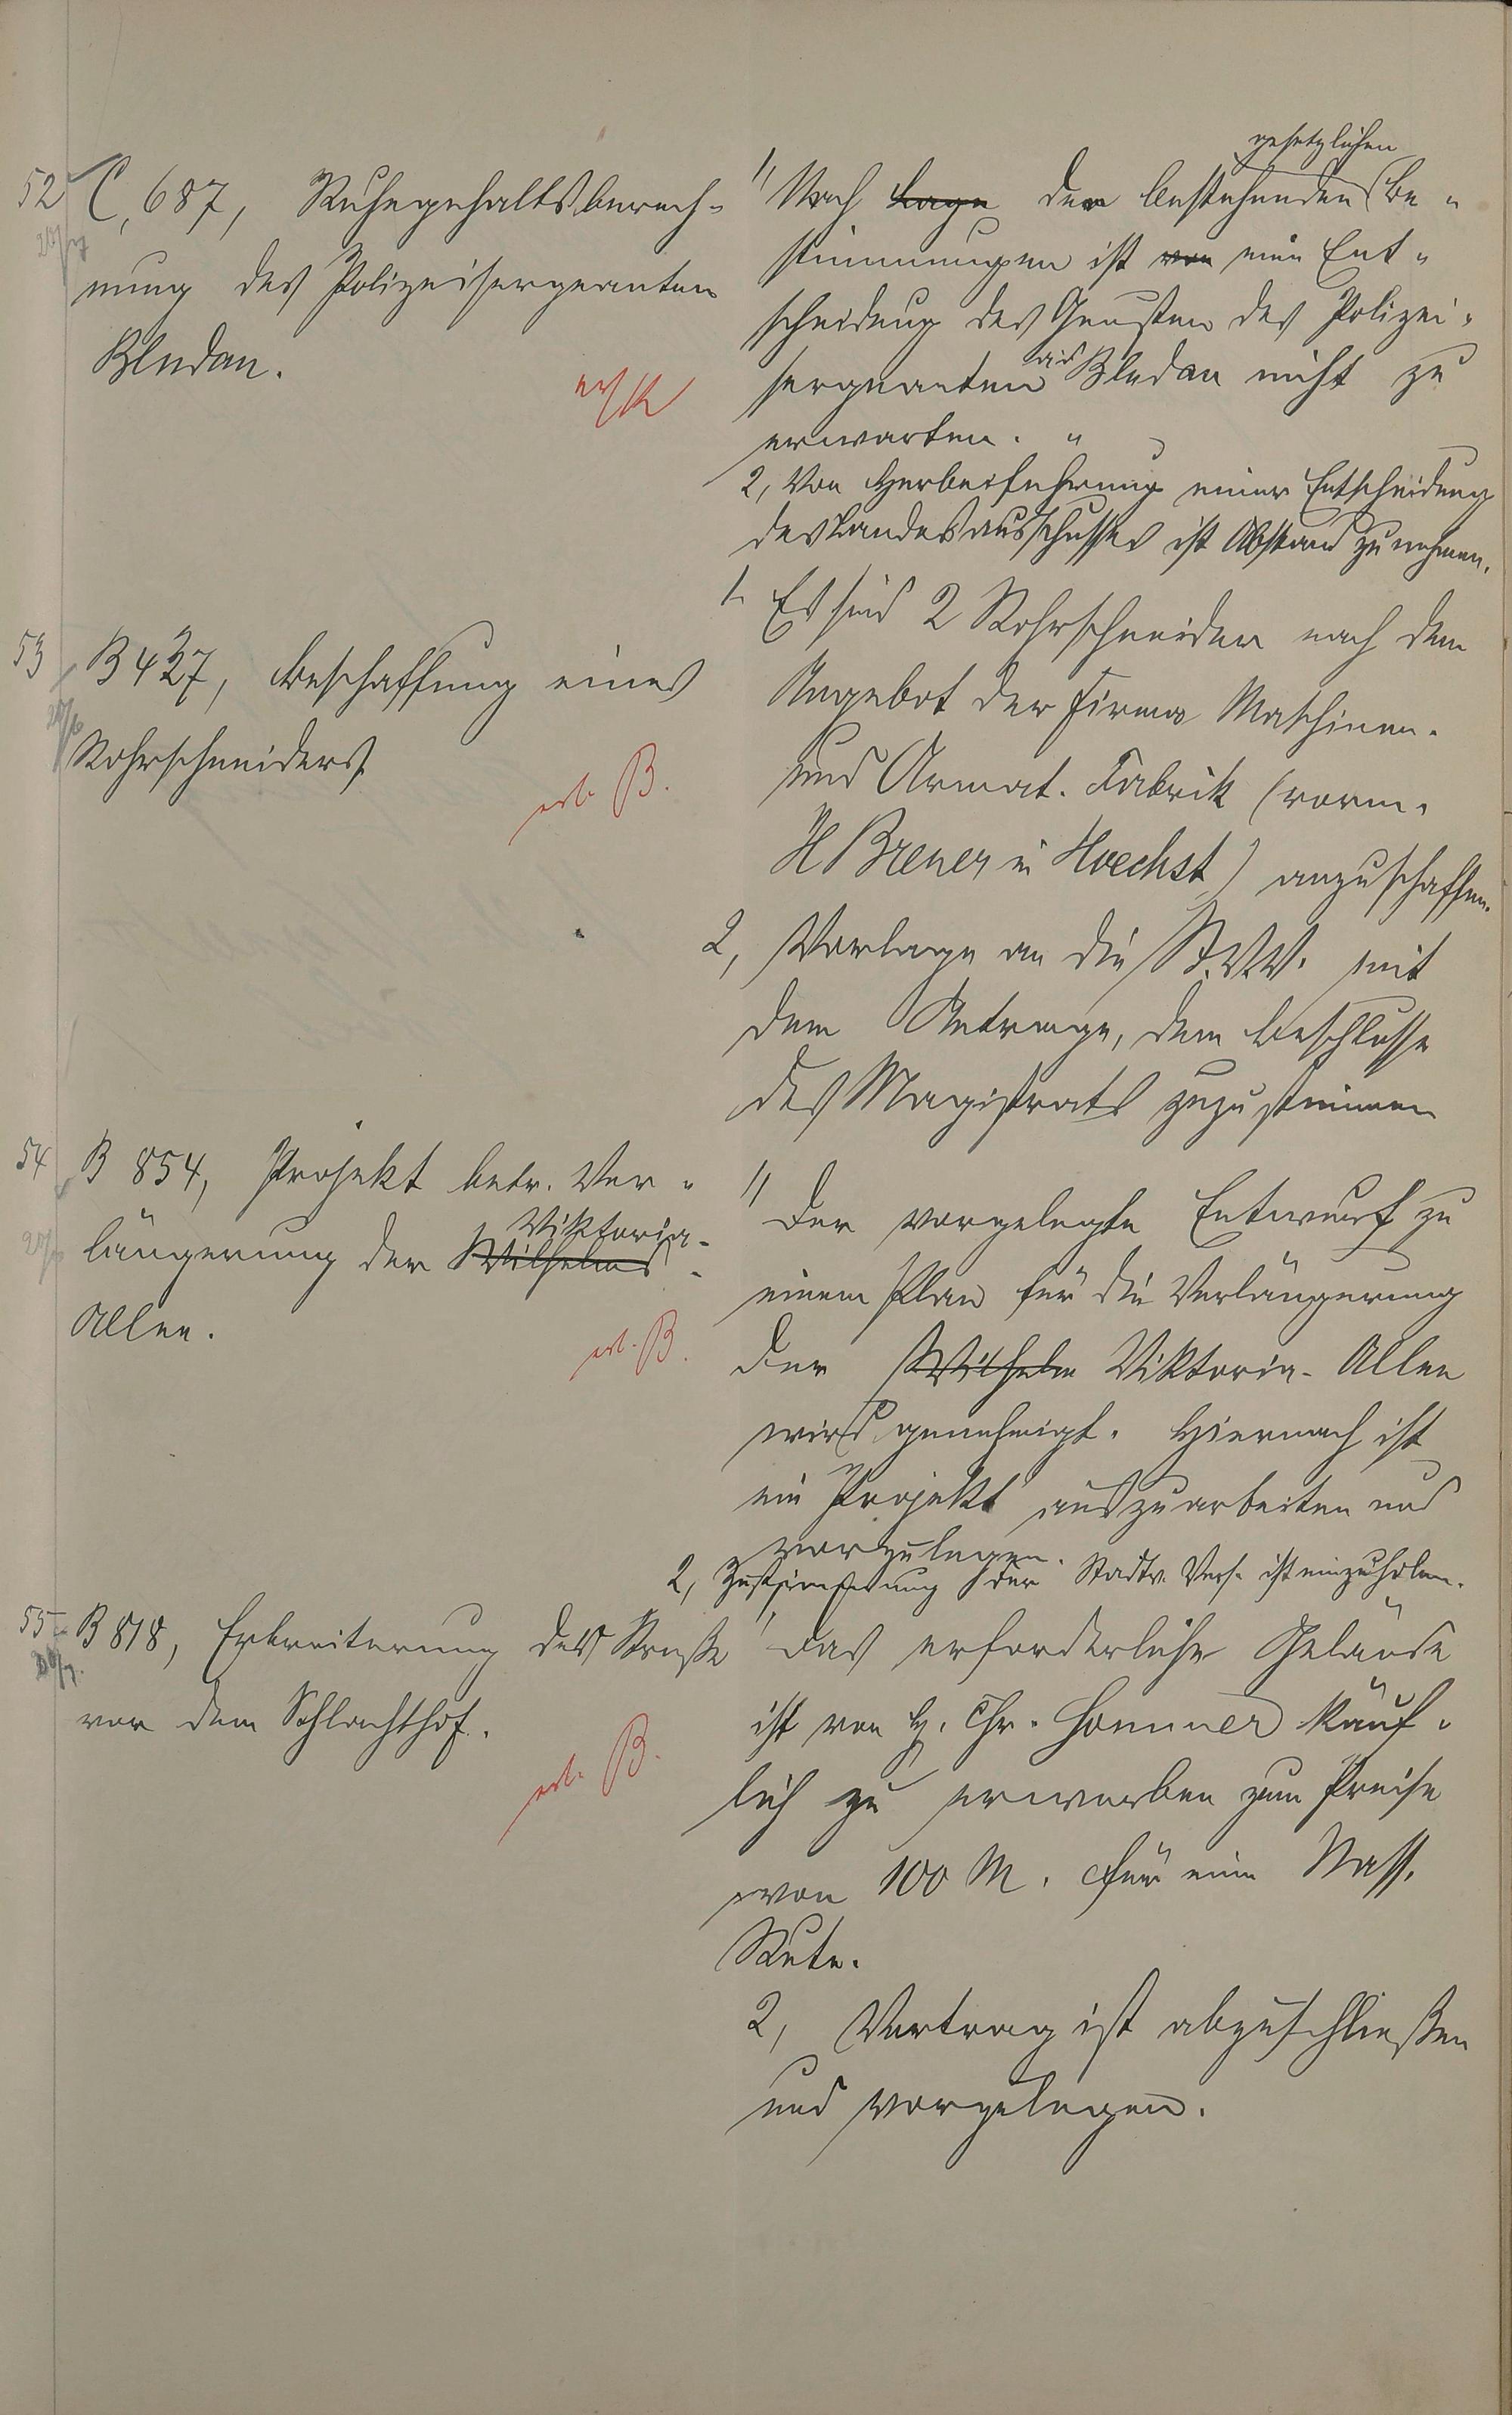 52 C, 687, Ruhegehaltsberech-
nung des Polizeisergeanten
Bludau.
1) Nach Lage der bestehenden gesetzlichen Be-
stimmungen ist von eine Ent-
scheidung des Gunsten des Polizei-
sergeanten Bludau nicht zu
erwarten.
2, Von Herbeiführung einer Entscheidung
des Landesausschusses ist Abstand zu nehmen.
53 B 427, Beschaffung eines
Rohrschneiders
erl. B.
1. Es sind 2 Rohrschneider nach dem
Angebot der Firma Maschinen-
und Armat. Fabrik (vorm.
H Breuer in Hoechst) anzuschaffen.
2, Vorlage an die St.V.V. mit
dem Antrage, dem Beschlusse
des Magistrats zuzustimmen
54 B 854, Projekt betr. Ver-
längerung der Wilhelms- Viktoria-
Allee.
erl. B.
1) Der vorgelegte Entwurf zu
einem Plan für die Verlängerung
der Wilhelm Viktoria-Allee
wird genehmigt. Hiernach ist
ein Projekt auszuarbeiten und
vorzulegen.
2, Zustimmung der Stadtv. Vers. ist einzuholen.
55 B 818, Erbreiterung der Straße
vor dem Schlachthof.
erl. B.
1, Das erforderliche Gelände
ist von H. Chr. Hommer käuf-
lich zu erwerben zum Preise
von 100 M. für eine Nass.
Rute.
2, Vertrag ist abzuschließen
und vorzulegen.